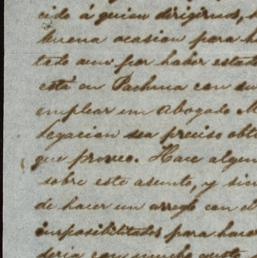 cido á quien dirigirnos,
buena ocasion para
tado aun por haber estado
está en Pachuca con su
emplear un Abogado
legacion sea preciso
que proveo. Hace algun
sobre este asunto, y sin
de hacer un arreglo con el
imposibilitados para hacer
deria con mucho gusto